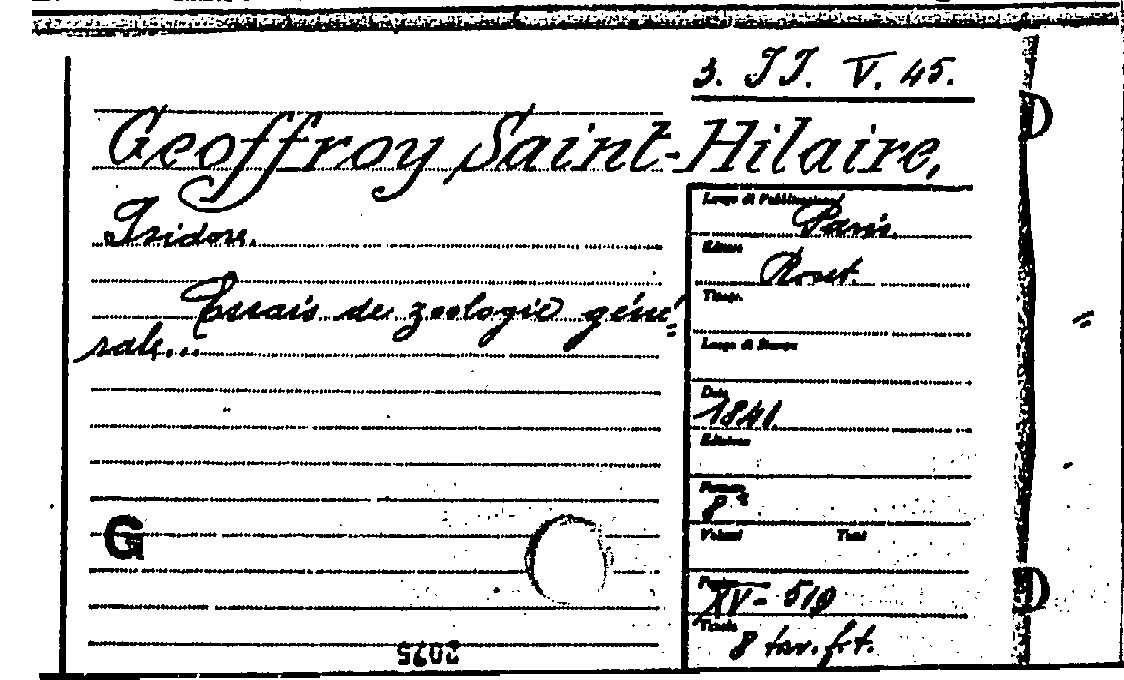 3. II. V. 45.
Geoffroy Saint-Hilaire,
Isidore.
Essais de zoologie géné=
rale...
Luogo di Pubblicazione
Paris.
Editore
Roret.
Luogo di Stampa
Data
1841.
Edizione
Formato
8°
Volumi Tomi
XV - 519
Tavole
8 tav. f.t.
G
2095